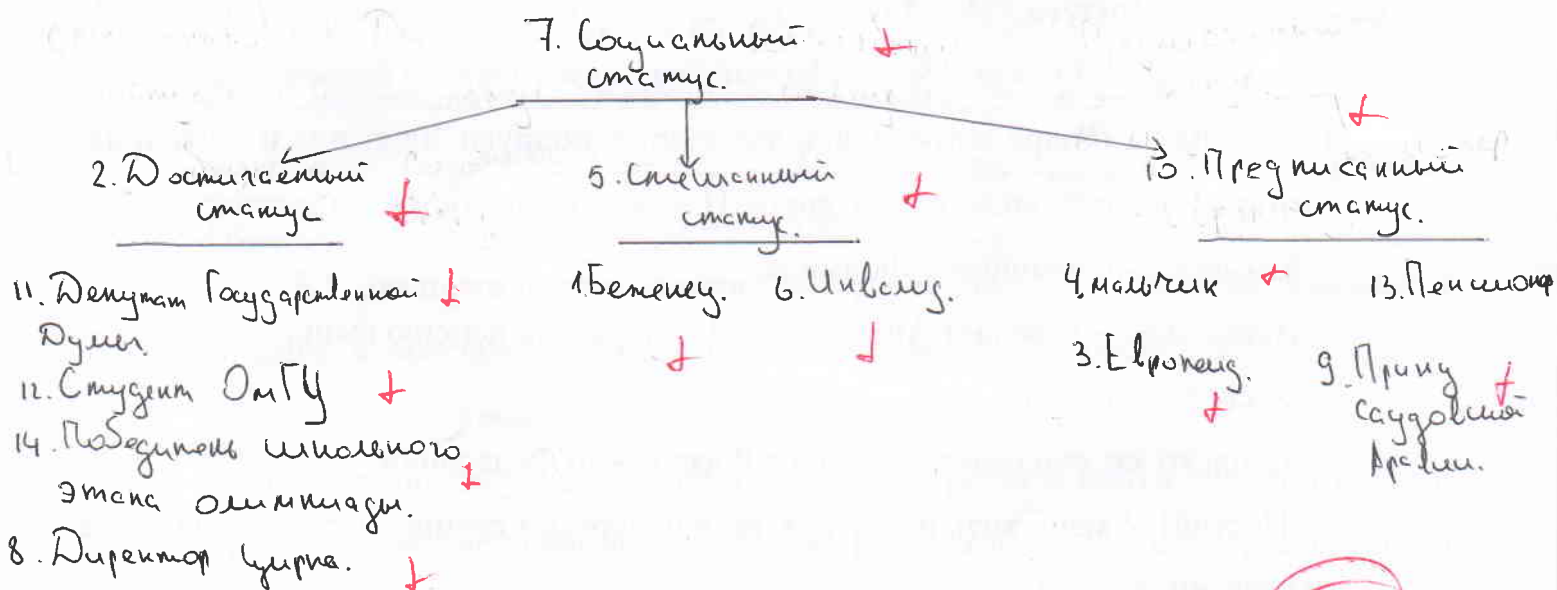 7. Социальный
статус.
2. Достигаемый
статус
5. Смешанный
статус.
10. Предписанный
статус.
11. Депутат Государственной
Думы.
12. Студент ОмГУ
14. Победитель школьного
этапа олимпиады.
8. Директор цирка.
1. Беженец. 6. Инвалид.
4. мальчик 13. Пенсионер
3. Европеид.
9. Принц
Саудовской
Аравии.